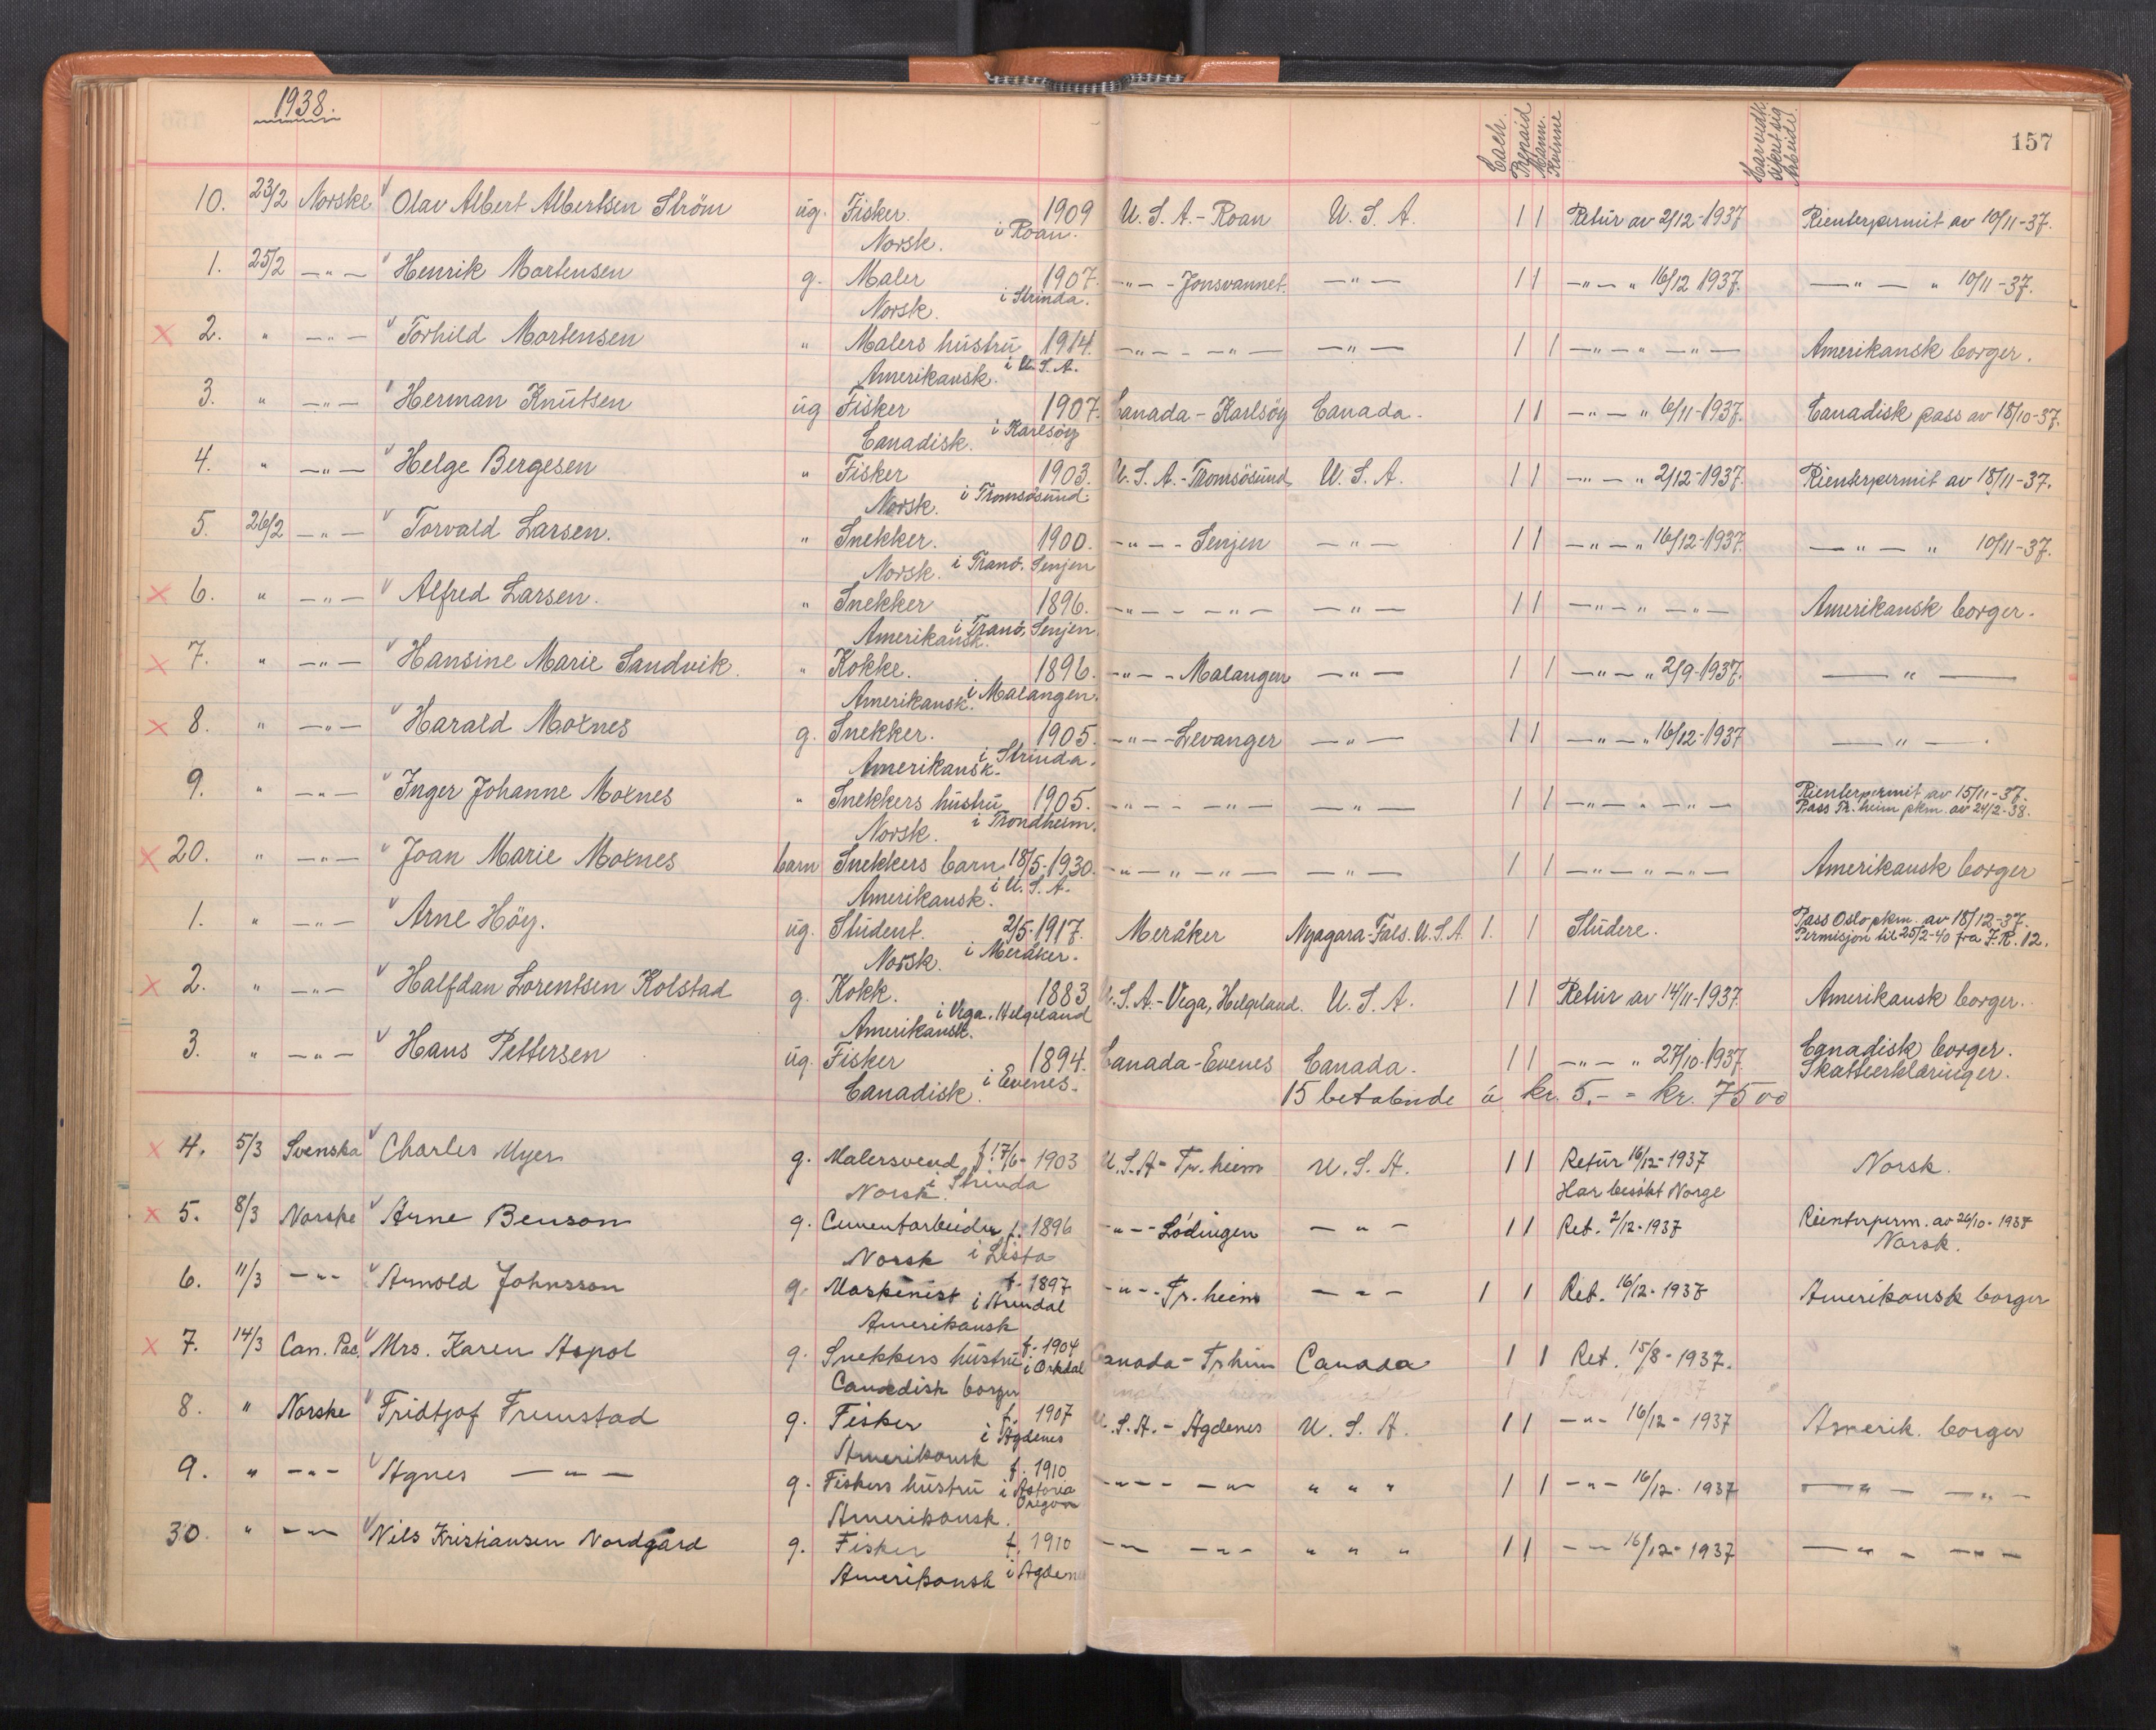 1938.
Cash. Prepaid Mann. Kvinne Har vedk. sikret sig Arbeide. 157
10. 23/2 Norske Olav Albert Albertsen Ström ug. Fisker. 1909 U.S.A.-Roan U.S.A. 1 1 Retur av 2/12-1937 Rienterpermit av 10/11-37.
Norsk. i Roan.
1. 25/2 -"- Henrik Mortensen g. Maler 1907. -"- - Jonsvannet. -"- 1 1 -"- " 16/12 1937. -"- " 10/11-37.
Norsk. i Strinda.
2. " -"- Torhild Mortensen " Malers hustru 1914. -"- - -"- -"- 1 1 -"- " -"- Amerikansk borger.
Amerikansk. i U.S.A.
3. " -"- Herman Knutsen ug Fisker 1907. Canada-Karlsöy Canada. 1 1 -"- " 6/11-1937. Canadisk pass av 18/10-37.
Canadisk. i Karlsöy
4. " -"- Helge Bergesen " Fisker 1903. U.S.A.-Tromsösund U.S.A. 1 1 -"- " 2/12-1937. Rienterpermit av 18/11-37.
Norsk. i Tromsösund.
5. 26/2 -"- Torvald Larsen. " Snekker. 1900. -"- - Senjen -"- 1 1 -"- " 16/12-1937. -"- " 10/11-37.
Norsk. i Tranö. Senjen
6. " -"- Alfred Larsen. " Snekker 1896. -"- - -"- -"- 1 1 -"- " -"- Amerikansk borger.
Amerikansk. i Tranö, Senjen.
7. " -"- Hansine Marie Sandvik. " Kokke. 1896. -"- - Malangen -"- 1 1 -"- " 2/9-1937. -"-
Amerikansk. i Malangen.
8. " -"- Harald Moxnes g. Snekker. 1905. -"- - Levanger -"- 1 1 -"- " 16/12-1937 -"-.
Amerikansk. i Strinda.
9. " -"- Inger Johanne Moxnes " Snekkers hustru 1905. -"- - -"- -"- 1 1 -"- " -"- Rienterpermit av 15/11-37.
Norsk. i Trondheim. Pass Tr.heim pkm. av 24/2-38.
20. " -"- Joan Marie Moxnes barn Snekkers barn 18/5-1930. -"- " -"- -"- 1 1 -"- " -"- Amerikansk borger
Amerikansk. i U.S.A.
1. " -"- Arne Höy. ug. Student. 2/5-1917. Meråker Nyagara-Fals. U.S.A. 1. 1 Studere. Pass Oslo pkm. av 18/12-37.
Norsk. i Meråker. Permisjon til 25/2-40 fra I.R. 12.
2. " -"- Halfdan Lorentsen Kolstad g. Kokk. 1883 U.S.A.-Vega, Helgeland. U.S.A. 1 1 Retur av 14/11-1937 Amerikansk borger.
Amerikansk. i Vega. Helgeland
3. " -"- Hans Pettersen ug. Fisker 1894. Canada-Evenes Canada. 1 1 -"- " 27/10-1937. Canadisk borger.
Canadisk. i Evenes. Skatteerklæringer.
15 betalende á kr. 5.- = kr. 75 00
4. 5/3 Svenska Charles Myer g. Malersvend f. 17/6-1903 U.S.A-Tr.heim U.S.A. 1 1 Retur 16/12-1937 Norsk.
Norsk. i Strinda Har besökt Norge
5. 8/3 Norske Arne Benson g. Cementarbeider f. 1896 -"- - Lödingen -"- 1 1 Ret. 2/12-1937 Rienterperm. av 26/10-1937
Norsk i Lista Norsk.
6. 11/3 -"- Arnold Johnsson g. Maskinist f. 1897 -"- - Tr.heim -"- 1 1 Ret. 16/12-1937 Amerikansk borger
Amerikansk i Arendal
7. 14/3 Can. Pac. Mrs. Karen Aspol g. Snekkers hustru f. 1904 Canada-Trheim Canada 1 1 Ret. 15/8-1937.
Canadisk borger i Orkdal
8. " Norske Fridtjof Frumstad g. Fisker f. 1907 U.S.A.-Agdenes U.S.A. 1 1 -"- 16/12-1937 Amerik. borger
Amerikansk i Agdenes
9. " -"- Agnes -"- g. Fiskers hustru f. 1910 -"- - -"- " " " 1 1 -"- 16/12-1937 -"- -"-
Amerikansk. i Astoria Oregon
30. " -"- Nils Kristiansen Nordgård g. Fisker f. 1910 -"- -"- " " " 1 1 -"- 16/12-1937 -"- -"-
Amerikansk i Agdenes